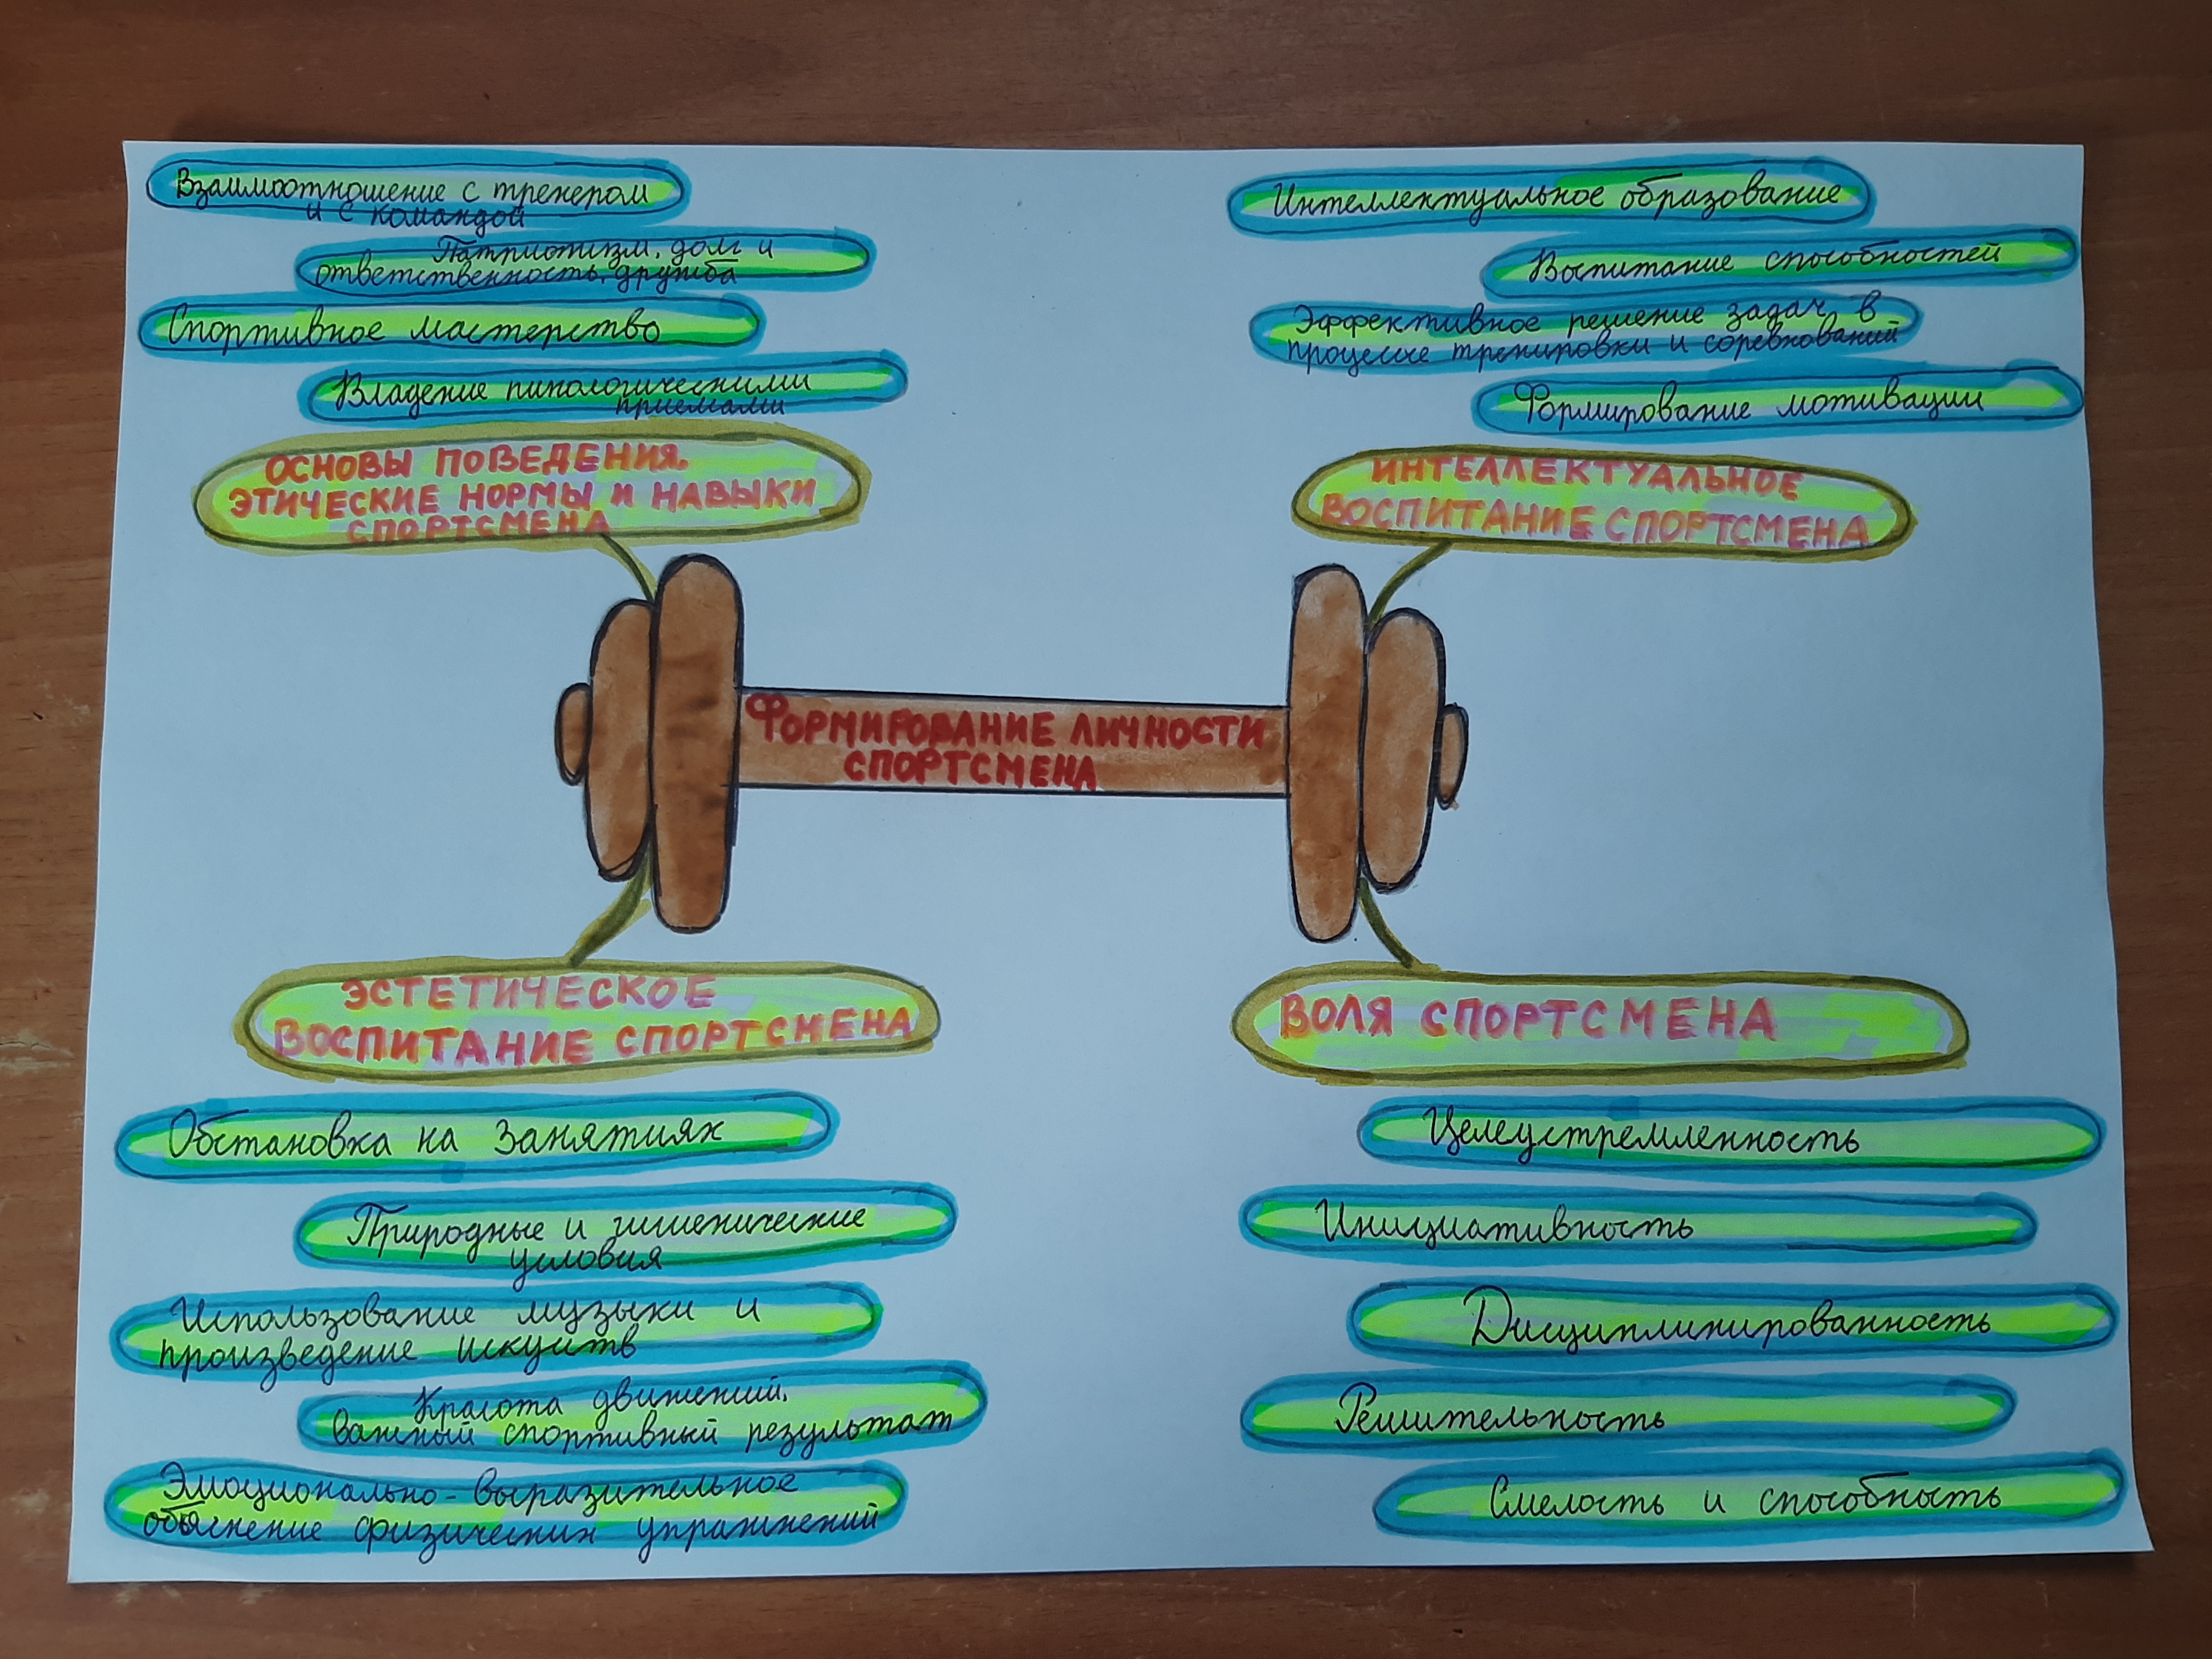 Взаимоотношение с тренером
и с командой
Патриотизм, долг и
ответственность, дружба
Спортивное мастерство
Владение пихологическими
приемами
ОСНОВЫ ПОВЕДЕНИЯ,
ЭТИЧЕСКИЕ НОРМЫ И НАВЫКИ
СПОРТСМЕНА
Интеллектуальное образование
Воспитание способностей
Эффективное решение задач в
процессе тренировки и соревнований
Формирование мотивации
ИНТЕЛЛЕКТУАЛЬНОЕ
ВОСПИТАНИЕ СПОРТСМЕНА
ФОРМИРОВАНИЕ ЛИЧНОСТИ
СПОРТСМЕНА
ЭСТЕТИЧЕСКОЕ
ВОСПИТАНИЕ СПОРТСМЕНА
Обстановка на занятиях
Природные и гигиенические
условия
Использование музыки и
произведение искуств
Красота движений,
важный спортивный результат
Эмоционально-выразительное
объяснение физических упражнений
ВОЛЯ СПОРТСМЕНА
Целеустремленность
Инициативность
Дисциплинированность
Решительность
Смелость и способность